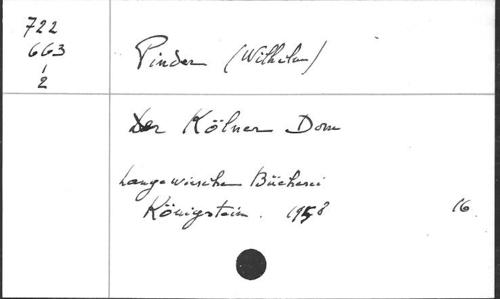 722
663
1
2
Pinder (Wilhelm)
Der Kölner Dom
Langewiesche Bücherei
Königstein. 1958
16